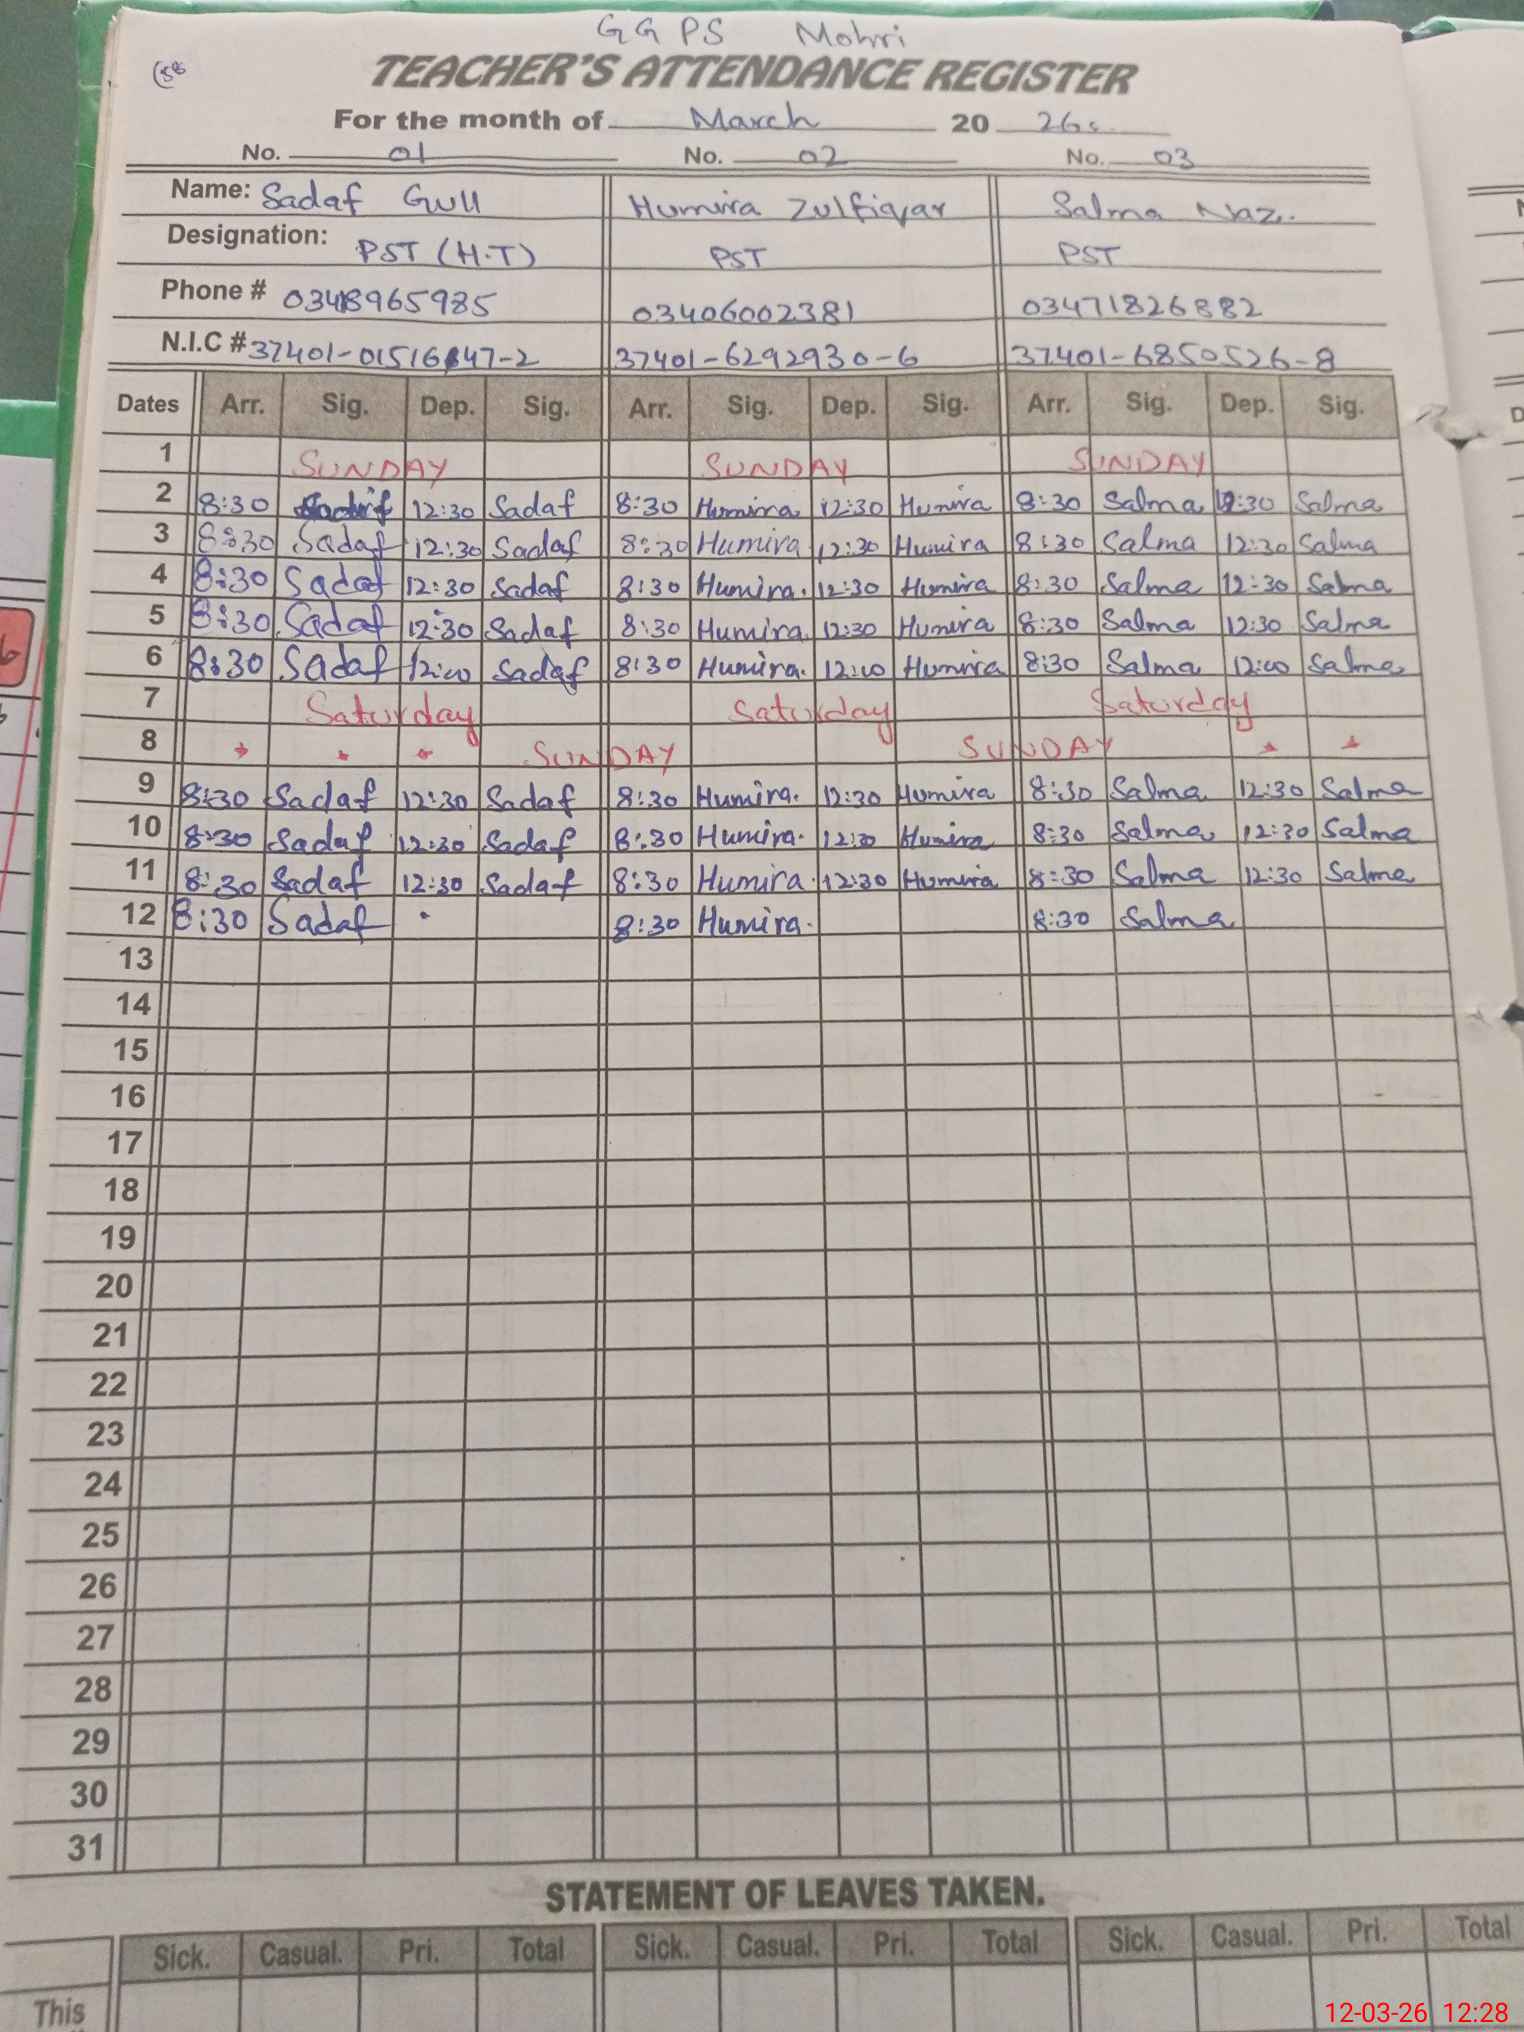 GGPS Mohri
TEACHER'S ATTENDANCE REGISTER
For the month of March 20 26
No. 01 No. 02 No. 03
Name: Sadaf Gull Humira Zulfiqar Salma Naz.
Designation: PST (H.T) PST PST
Phone # 0348965985 03406002381 03471826882
N.I.C # 37401-0151647-2 37401-6292930-6 37401-6850526-8
Dates Arr. Sig. Dep. Sig. Arr. Sig. Dep. Sig. Arr. Sig. Dep. Sig.
1 SUNDAY SUNDAY SUNDAY
2 8:30 Sadaf 12:30 Sadaf 8:30 Humira 12:30 Humira 8:30 Salma 12:30 Salma
3 8:30 Sadaf 12:30 Sadaf 8:30 Humira 12:30 Humira 8:30 Salma 12:30 Salma
4 8:30 Sadaf 12:30 Sadaf 8:30 Humira. 12:30 Humira 8:30 Salma 12:30 Salma
5 8:30 Sadaf 12:30 Sadaf 8:30 Humira 12:30 Humira 8:30 Salma 12:30 Salma
6 8:30 Sadaf 12:00 Sadaf 8:30 Humira. 12:00 Humira 8:30 Salma 12:00 Salma
7 Saturday Saturday Saturday
8 SUNDAY SUNDAY
9 8:30 Sadaf 12:30 Sadaf 8:30 Humira. 12:30 Humira 8:30 Salma 12:30 Salma
10 8:30 Sadaf 12:30 Sadaf 8:30 Humira. 12:30 Humira 8:30 Salma 12:30 Salma
11 8:30 Sadaf 12:30 Sadaf 8:30 Humira. 12:30 Humira 8:30 Salma 12:30 Salma
12 8:30 Sadaf 8:30 Humira. 8:30 Salma
13
14
15
16
17
18
19
20
21
22
23
24
25
26
27
28
29
30
31
STATEMENT OF LEAVES TAKEN.
Sick. Casual. Pri. Total Sick. Casual. Pri. Total Sick. Casual. Pri. Total
This
12-03-26 12:28